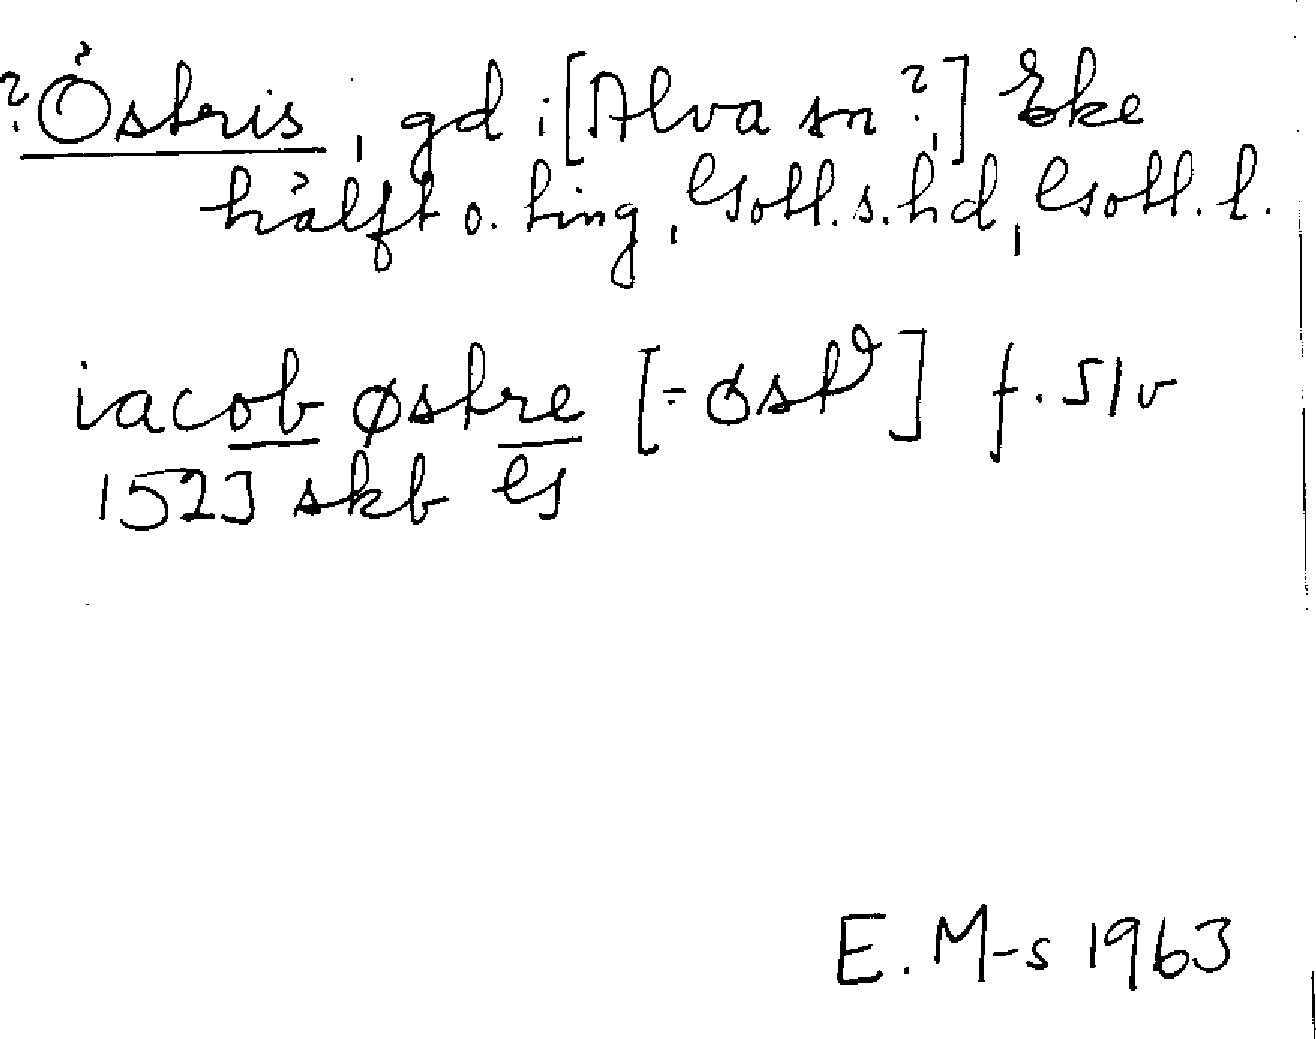 ?Östris, gd i [Alva sn?,] Eke
hälft o. ting, Gotl. s. hd, Gotl. l.
iacob østre [= østꝰ] f. 51v
1523 skb G
E. M-s 1963